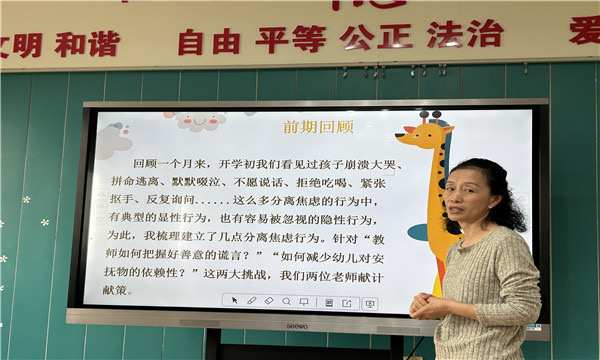 文明 和谐 自由 平等 公正 法治 爱
前期回顾
回顾一个月来，开学初我们看见过孩子崩溃大哭、
拼命逃离、默默啜泣、不愿说话、拒绝吃喝、紧张
抠手、反复询问......这么多分离焦虑的行为中，
有典型的显性行为，也有容易被忽视的隐性行为，
为此，我梳理建立了几点分离焦虑行为。针对“教
师如何把握好善意的谎言？”“如何减少幼儿对安
抚物的依赖性？”这两大挑战，我们两位老师献计
献策。
seewo